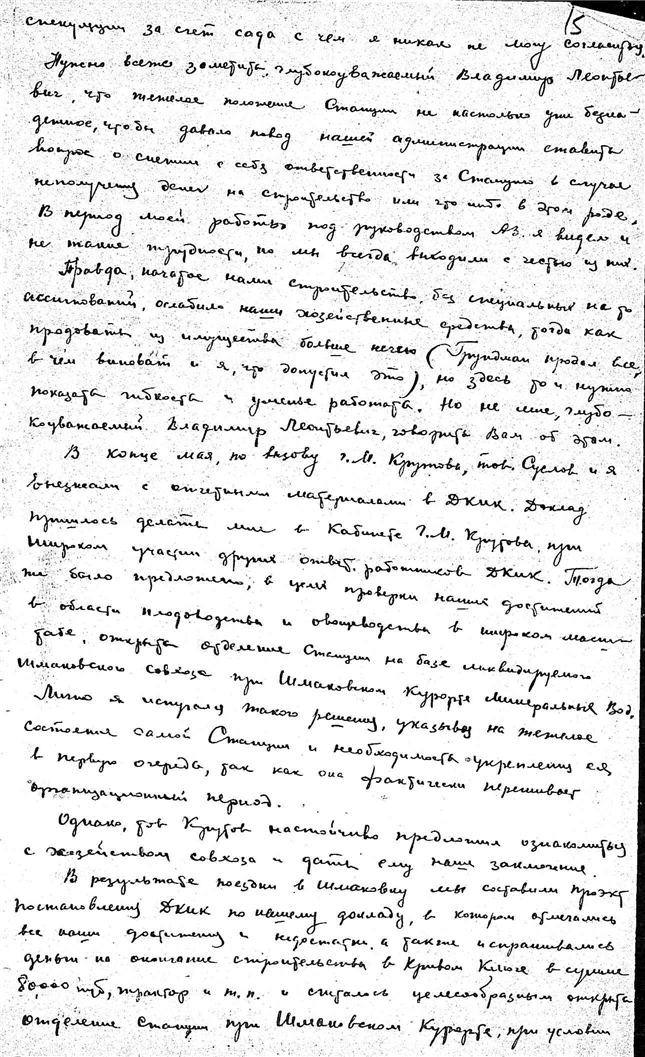 15
спекуляции за счет сада с чем я никак не могу согласиться.
Нужно всеже заметить, глубокоуважаемый Владимир Леонтье-
вич, что тежелое положение Станции не настолько уже безна-
дежное, чтобы давало повод нашей администрации ставить
вопрос о снятии с себя ответственности за Станцию в случае
неполучения денег на строительство или что либо в этом роде.
В период моей работы под руководством АЗ. я видел и
не такие трудности, но мы всегда выходили с честью из них.
Правда, начатое нами строительство, без специальных на то
ассигнований, ослабило наши хозяйственные средства, тогда как
продовать из имущества больше нечего (Грундман продал все,
в чем виноват и я, что допустил это), но здесь то и нужно
показать гибкость и уменье работать. Но не мне, глубо-
коуважаемый Владимир Леонтьевич, говорить Вам об этом.
В конце мая, по вызову Г.М. Крутова, тов. Суслов и я
выезжали с отчетными материалами в ДКИК. Доклад
пришлось делать мне в Кабинете Г.М. Крутова, при
широком участии других ответ. работников ДКИК. Тогда
же было предложено, в целях проверки наших достижений
в области плодоводства и овощеводства в широком масш-
табе, открыть отделение Станции на базе ликвидируемого
Шмаковского совхоза при Шмаковском Курорте Минеральных Вод.
Лично я испугался такого решения, указывая на тежелое
состояние самой Станции и необходимость укрепления ея
в первую очередь, так как она фактически переживает
организационный период.
Однако, тов Крутов настойчиво предложил ознакомиться
с хозяйством совхоза и дать ему наше заключение.
В результате поездки в Шмаковку мы составили проэкт
постановления ДКИК по нашему докладу, в котором отмечались
все наши достижения и недостатки, а также испрашивались
деньги на окончание строительства в Кривом Ключе в сумме
80,000 руб, трактор и т.п. и считалось целесообразным открыть
отделение Станции при Шмаковском Курорте, при условии